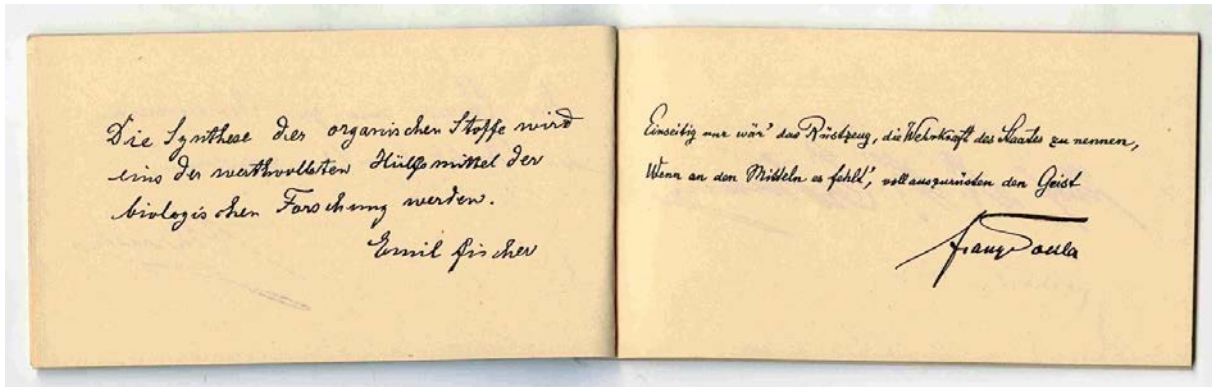 Die Synthese der organischen Stoffe wird
eins der werthvollsten Hülfsmittel der
biologischen Forschung werden.
Emil Fischer
Einseitig nur wär' das Rüstzeug, die Wehrkraft des Staates zu nennen,
Wenn an den Mitteln es fehlt', voll auszurüsten den Geist
Franz Toula